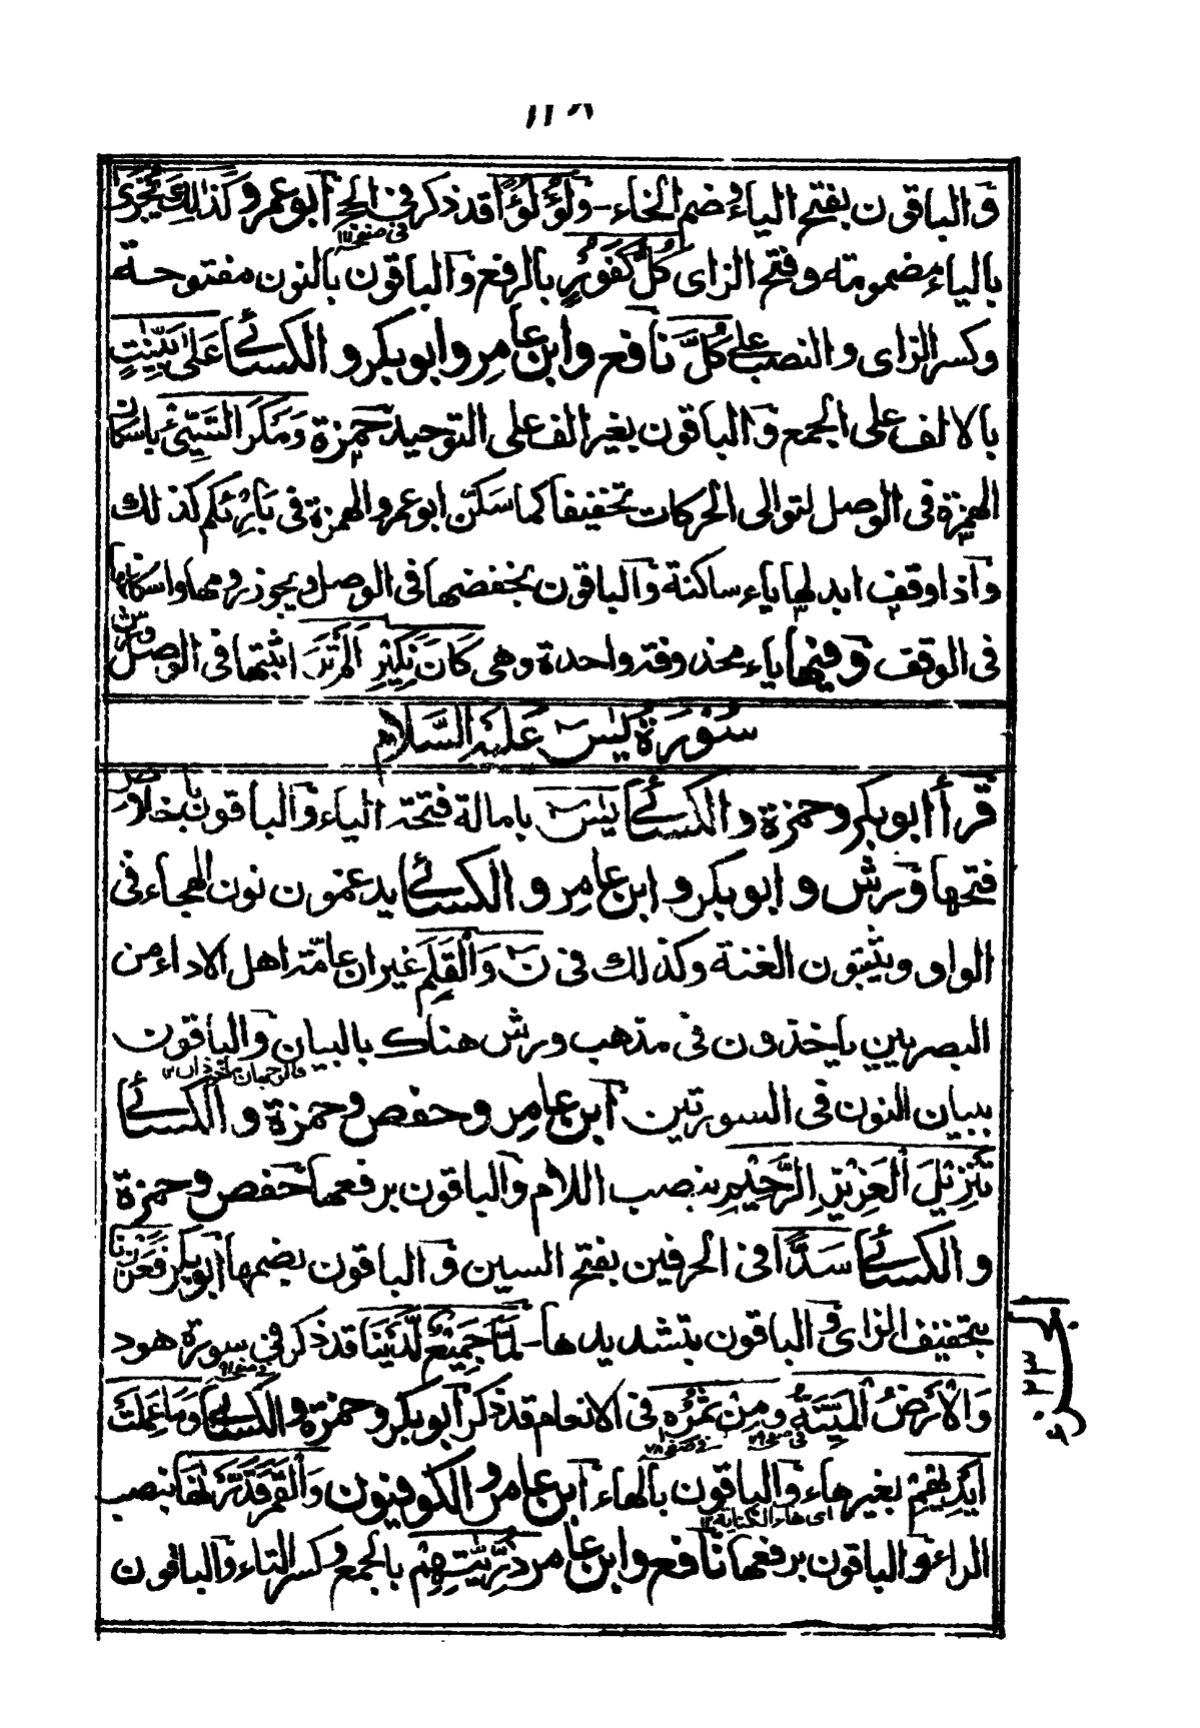 والباقون بفتح الياء وضم الخاء - ولؤلؤا قد ذكر فى الحج ابو عمرو كذلك يجزى
فى صفحة
بالياء مضمومته وفتح الزاى كُلُّ كَفُورٍ بالرفع والباقون بالنون مفتوحة
وكسر الزاى والنصب على كُلَّ نافع وابن عامر وابوبكر والكسائے عَلىٰ بَيِّنٰتٍ
بالالف على الجمع والباقون بغير الف على التوحيد حمزة وَمَكْرَ السَّيِّئْ باسكان
الهمزة فى الوصل لتوالى الحركات تخفيفا كما سكن ابو عمرو الهمزة فى بَارِئْكم كذلك
واذا وقف ابدلها ياء ساكنة والباقون بخفضها فى الوصل ويجوز رومها واسكانها
فى الوقف وفيها ياء محذوفة واحدة وهى كَانَ نَكِيْرِ اَلَمْ تَرَ اثبتها فى الوصل ورش
سُوْرَةُ يٰسٓ عَلَيْهِ السَّلَام
قرأ ابوبكر وحمزة والكسائے يٰسٓ بامالة فتحة الياء والباقون باخلاص
فتحها ورش وابوبكر وابن عامر والكسائے يدغمون نون الهجاء فى
الواو ويثبتون الغنة وكذلك فى نٓ وَالْقَلَمِ غير ان عامة اهل الاداء من
البصريين ياخذون فى مذهب ورش هناك بالبيان والباقون
ببيان النون فى السورتين ابن عامر وحفص وحمزة والكسائے
تَنْزِيْلَ الْعَزِيْزِ الرَّحِيْمِ بنصب اللام والباقون برفعها حفص وحمزة
والكسائے سَدًّا فى الحرفين بفتح السين والباقون بضمها ابوبكر فَعَزَزْنَا
بتخفيف الزاى والباقون بتشديدها - لَمَّا جَمِيْعٌ لَّدَيْنَا قد ذكر فى سورة هود
وَالْاَرْضُ الْمَيْتَةُ وَمِنْ ثَمَرِهٖ فى الانعام قد ذكر ابوبكر وحمزة والكسائے وَمَا عَمِلَتْ
اَيْدِيْهِمْ بغير هاء والباقون بالهاء ابن عامر والكوفيون وَالْقَمَرَ قَدَّرْنٰهُ بنصب
اى هاء الكناية
الراء والباقون برفعها نافع وابن عامر ذُرِّيّٰتِهِمْ بالجمع وكسر التاء والباقون